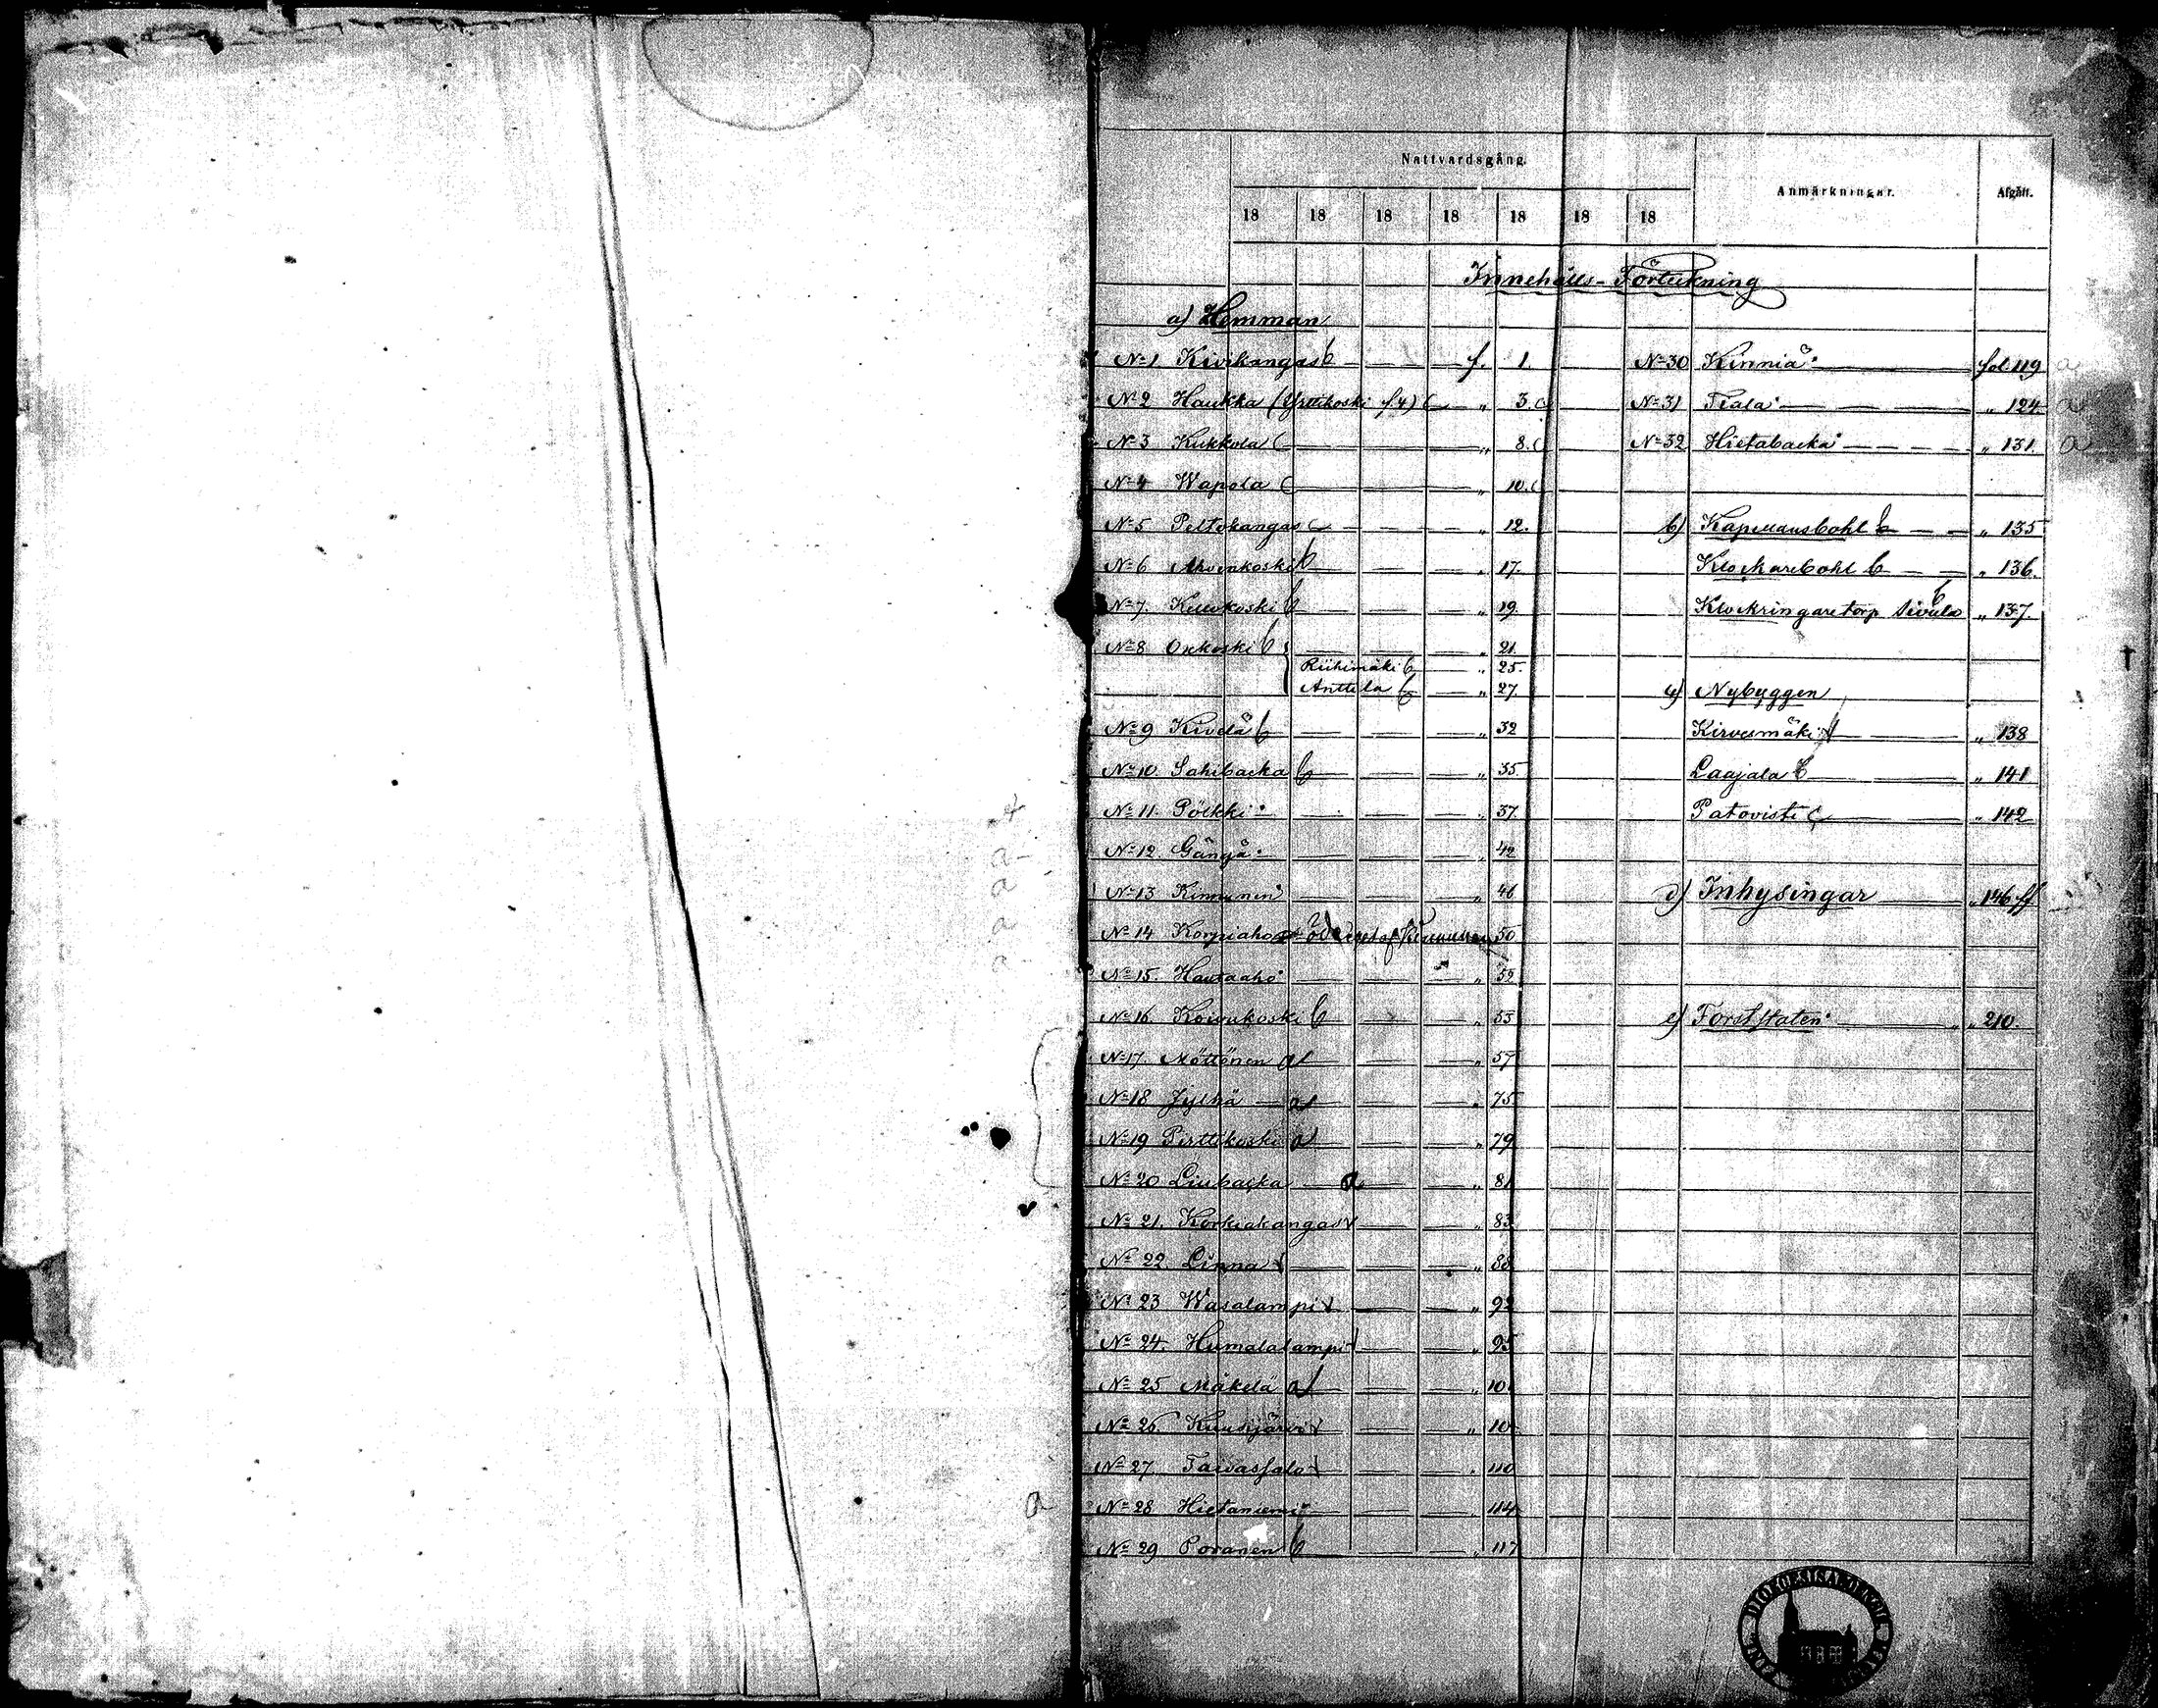 Nattvardsgång.
Anmärkningar.
Afgått.
18 18 18 18 18 18 18
Innehålls-Förteckning
a) Hemman
No 1 Kivikangas f. 1.
No 2 Haukka (Yrttikoski f 4) " 3.
No 3 Kukkola " 8.
No 4 Wapola " 10.
No 5 Peltokangas " 12.
No 6 Ahvenkoski " 17.
No 7. Kellokoski " 19.
No 8 Oxkoski " 21.
Riihimäki " 25.
Anttila " 27.
No 9 Kivelä " 32
No 10. Sahibacka " 35.
No 11. Pölkki " 37.
No 12. Gångå " 42
No 13 Kinnunen " 46
No 14 Korpiaho Öde 50
No 15. Hautaaho " 52
No 16. Koivukoski " 53
No 17. Möttönen a " 57
No 18 Jylhä a " 75
No 19 Pirttikoski a " 79
No 20 Liubacka a " 81
No 21. Korkiakangas " 83
No 22. Linna " 88
No 23 Wasalampi " 92
No 24. Humalalampi " 95
No 25 Mäkelä a " 10
No 26. Kuusijärvi " 10
No 27 Taivassalo " 110
No 28 Hietaniemi " 114
No 29 Poranen " 117
No 30 Kinnia fol. 119 a
No 31 Tiala " 124 a
No 32 Hietabacka " 131. a
b) Kapellansbohl " 135
Klockarebohl " 136.
Klockringaretorp Sivula " 137.
c) Nybyggen
Kirvesmäki " 138
Laajala " 141
Patovisti " 142
d) Inhysingar " 146 ff
e) Forststaten " 210.